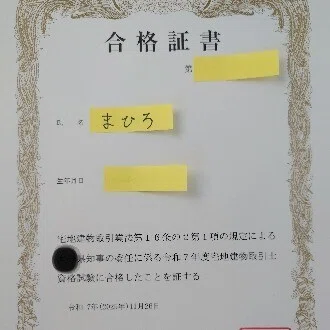 合格証書
第
氏 名 まひろ
生年月日
宅地建物取引業法第16条の2第1項の規定による
県知事の委任に係る令和7年度宅地建物取引士
資格試験に合格したことを証する
令和 7年(2025年)11月26日